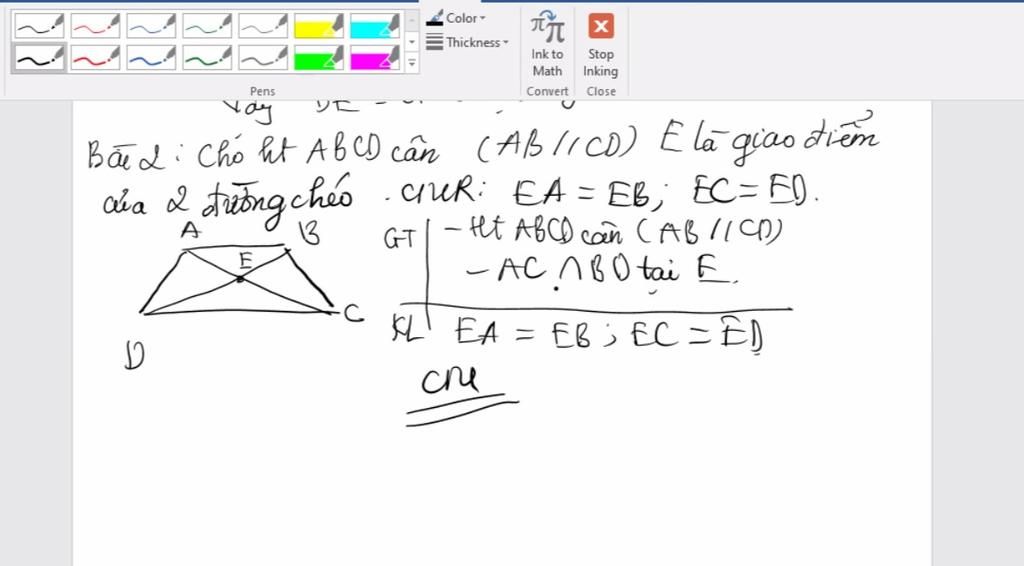 Color
Thickness
Ink to Math
Stop Inking
Pens
Convert
Close
Vậy DE =
Bài 2: Cho ht ABCD cân (AB//CD) E là giao điểm
của 2 đường chéo. CMR: EA = EB; EC = ED.
A B
E
C
D
GT - Ht ABCD cân (AB//CD)
- AC ∩ BD tại E.
KL EA = EB; EC = ED
CM